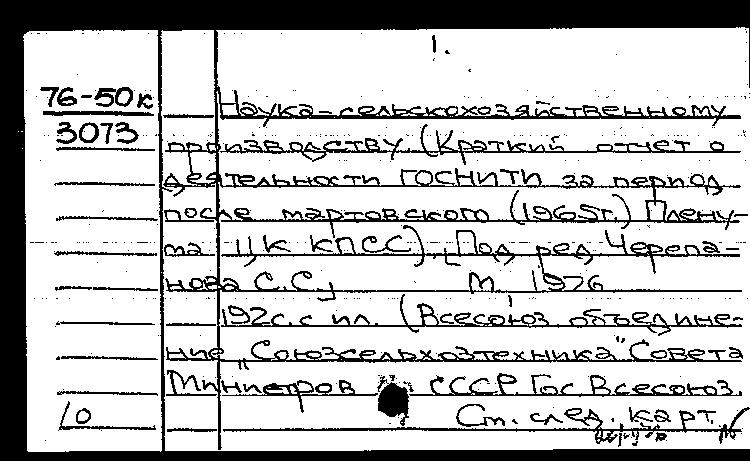 1.
76-50к
3073
Наука-сельскохозяйственному
производству. (Краткий отчет о
деятельности ГОСНИТИ за период
после мартовского (1965г.) Плену-
ма ЦК КПСС). [Под ред. Черепа-
нова С.С.] М. 1976
192с. с ил. (Всесоюз. объедине-
ние "Союзсельхозтехника" Совета
Министров СССР. Гос. Всесоюз.
10 См. след. карт.